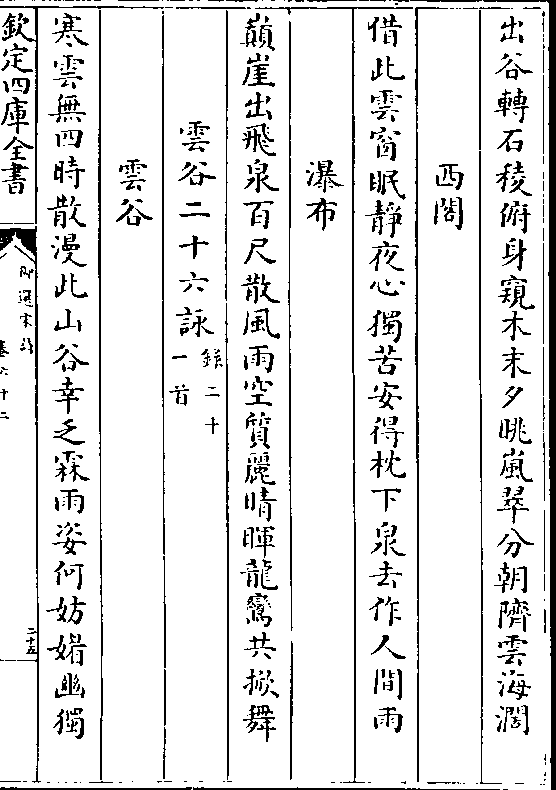 出谷轉石稜俯身窺木末夕眺嵐翠分朝隮雲海濶
西閣
借此雲窗眠靜夜心獨苦安得枕下泉去作人間雨
瀑布
巔崖出飛泉百尺散風雨空質麗晴暉龍鸞共掀舞
雲谷二十六詠
錄二十
一首
雲谷
寒雲無四時散漫此山谷幸乏霖雨姿何妨媚幽獨
欽定四庫全書
御選宋詩
卷六十二
二十五